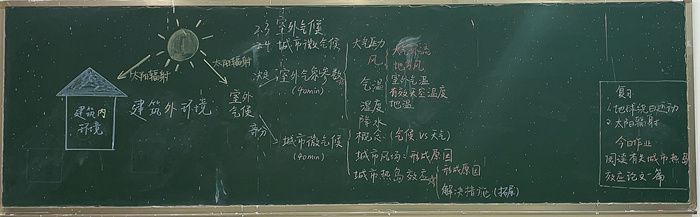 2.3 室外气候
2.4 城市微气候
太阳辐射
太阳辐射
建筑内
环境
建筑外环境
室外
气候
室外气候参数
(40min)
大气压力
风
大气环流
地方风
气温
室外气温
有效天空温度
地温
湿度
降水
部分
城市微气候
(40min)
概念 (气候 vs 天气)
城市风场 形成原因
城市热岛效应
形成原因
解决措施 (拓展)
复习
1.地球绕日运动
2.太阳辐射
今日作业
阅读有关城市热岛
效应论文一篇